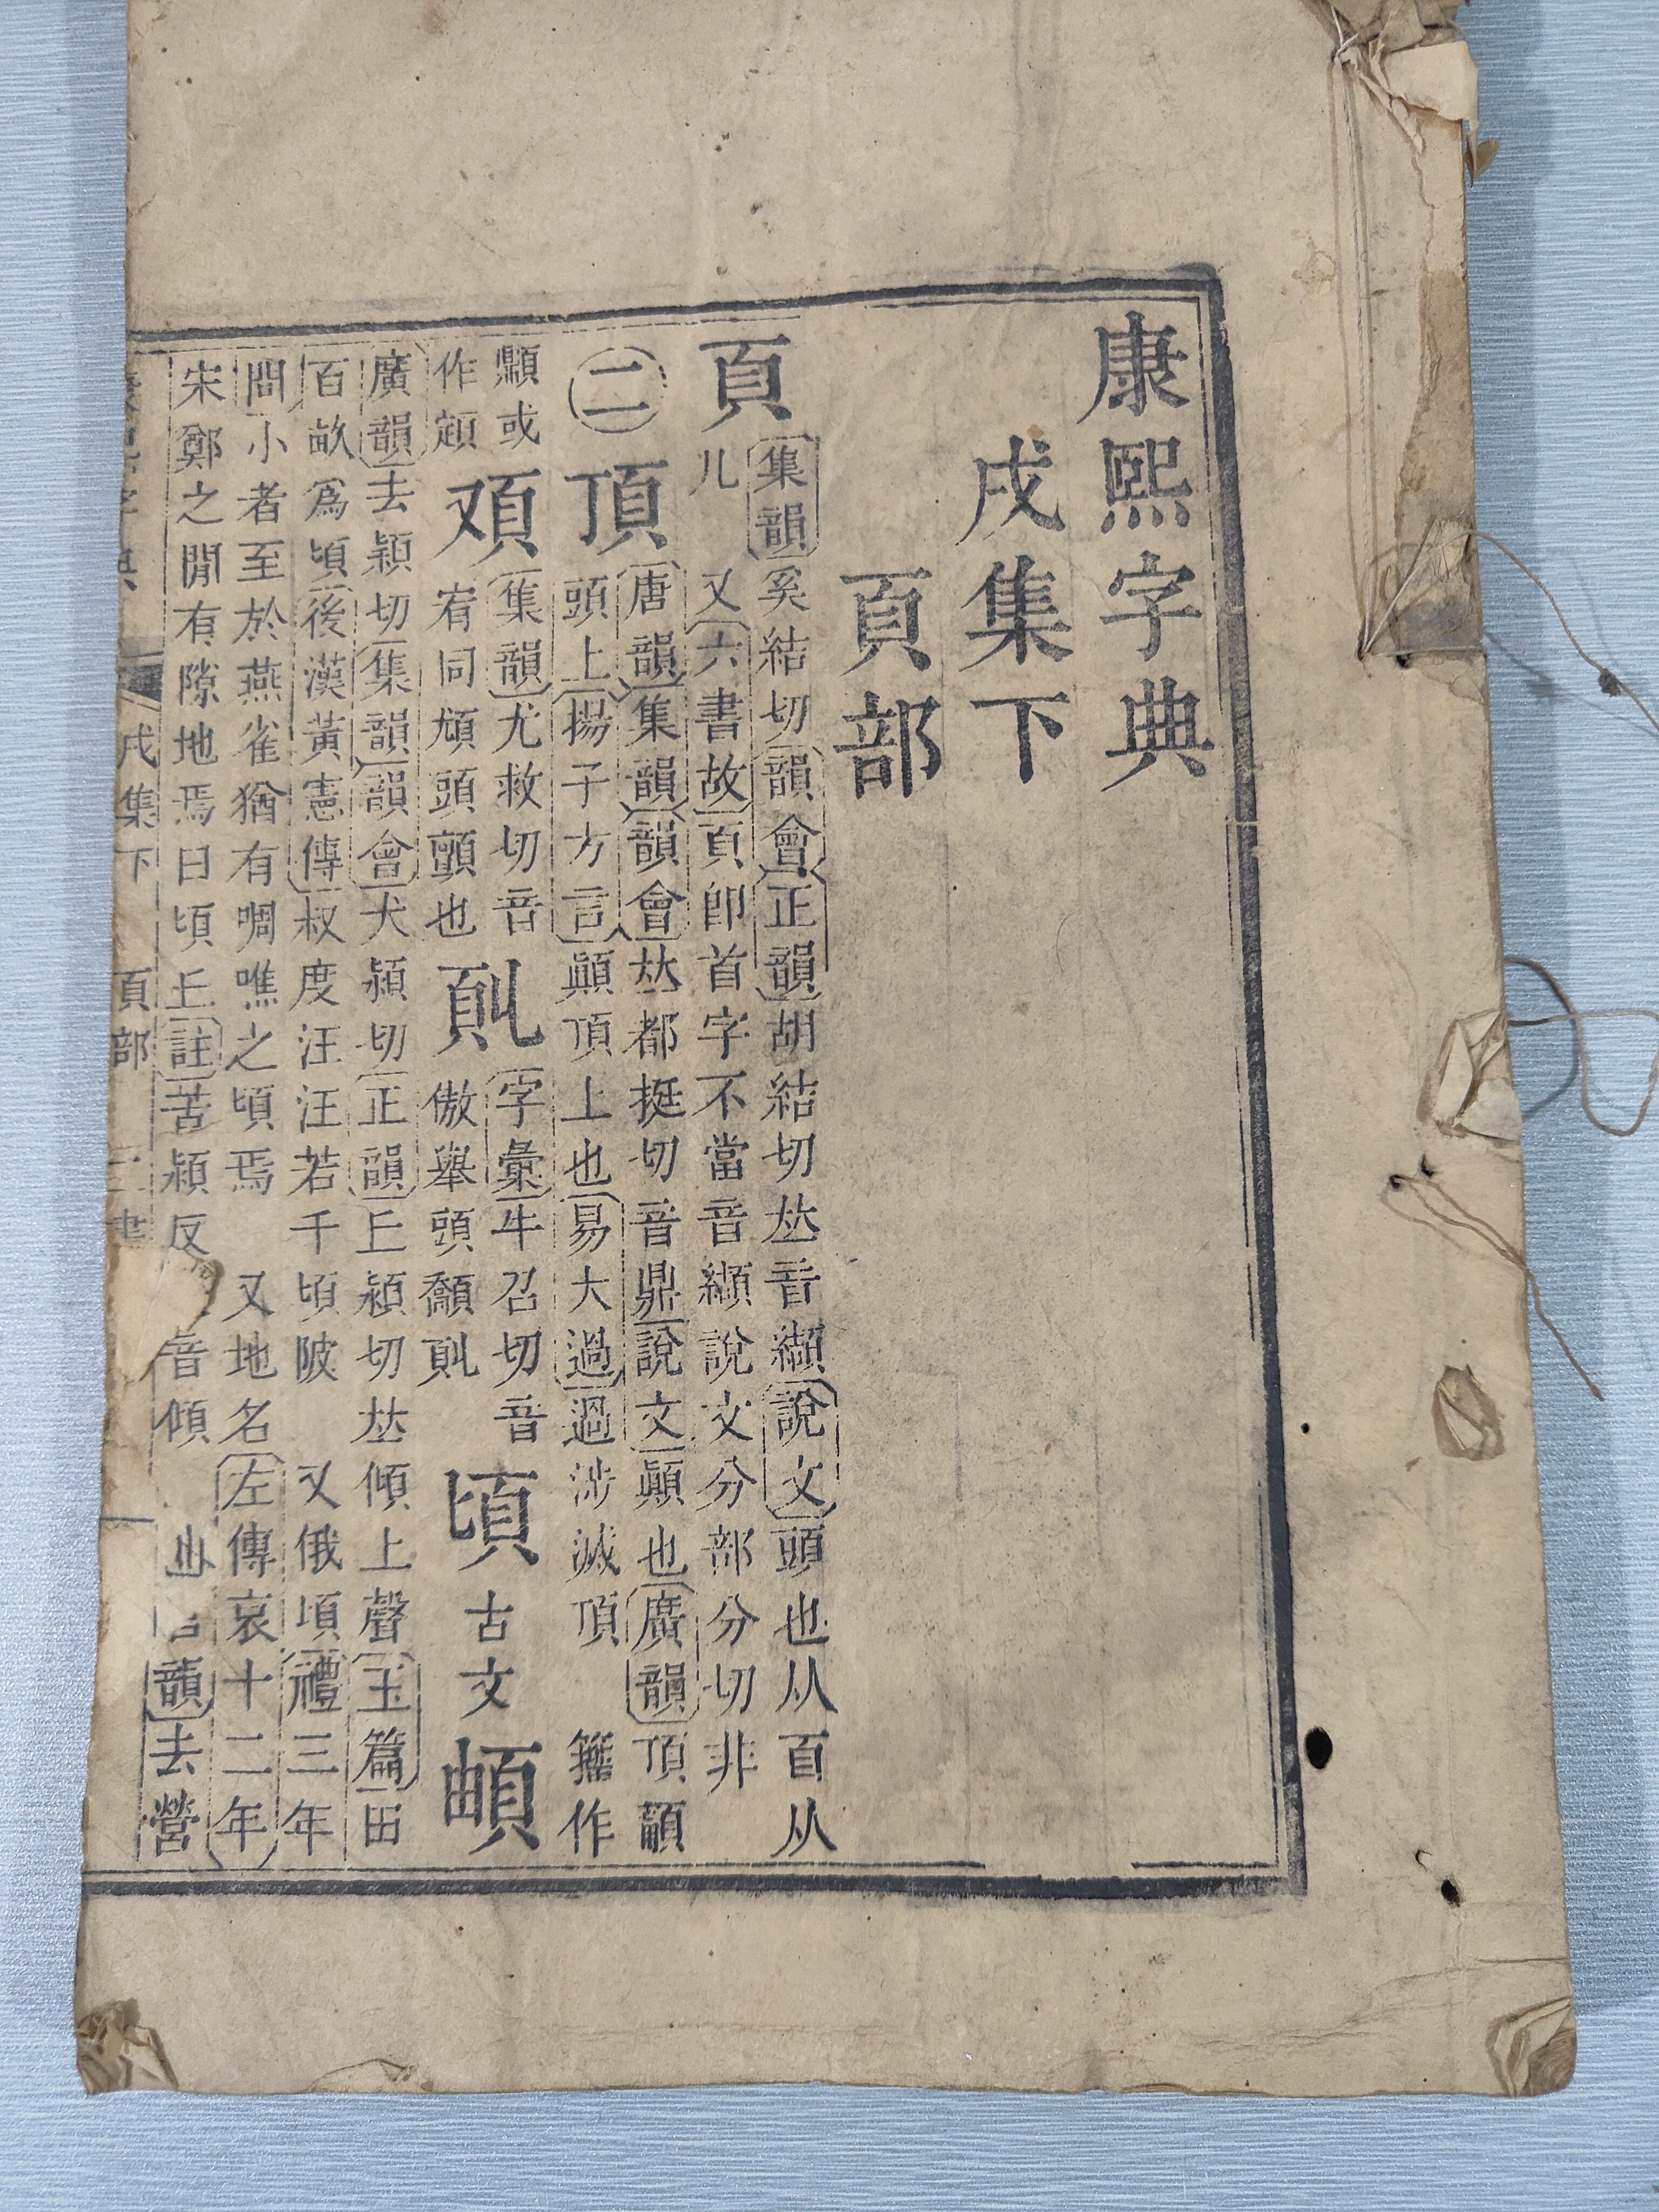 康熙字典
戌集下
頁部
頁
集韻奚結切韻會正韻胡結切𠀤音纈說文頭也从𦣻从
儿　又六書故頁卽首字不當音纈說文分部分切非
㊁
頂
唐韻集韻韻會𠀤都挺切音鼎說文顚也廣韻頂𩕳
頭上揚子方言顚頂上也易大過過涉滅頂　籀作
顯或
作𩒹
㕛頁
集韻尤救切音
宥同頄頭顫也
字彙牛召切音
傲舉頭顤
頃
古文
廣韻去潁切集韻韻會犬潁切正韻丘潁切𠀤傾上聲玉篇田
百畝爲頃後漢黃憲傳叔度汪汪若千頃陂　又俄頃禮三年
問小者至於燕雀猶有啁噍之頃焉　又地名左傳哀十二年
宋鄭之閒有隙地焉曰頃丘註苦潁反　音傾　韻去營
戌集下　頁部